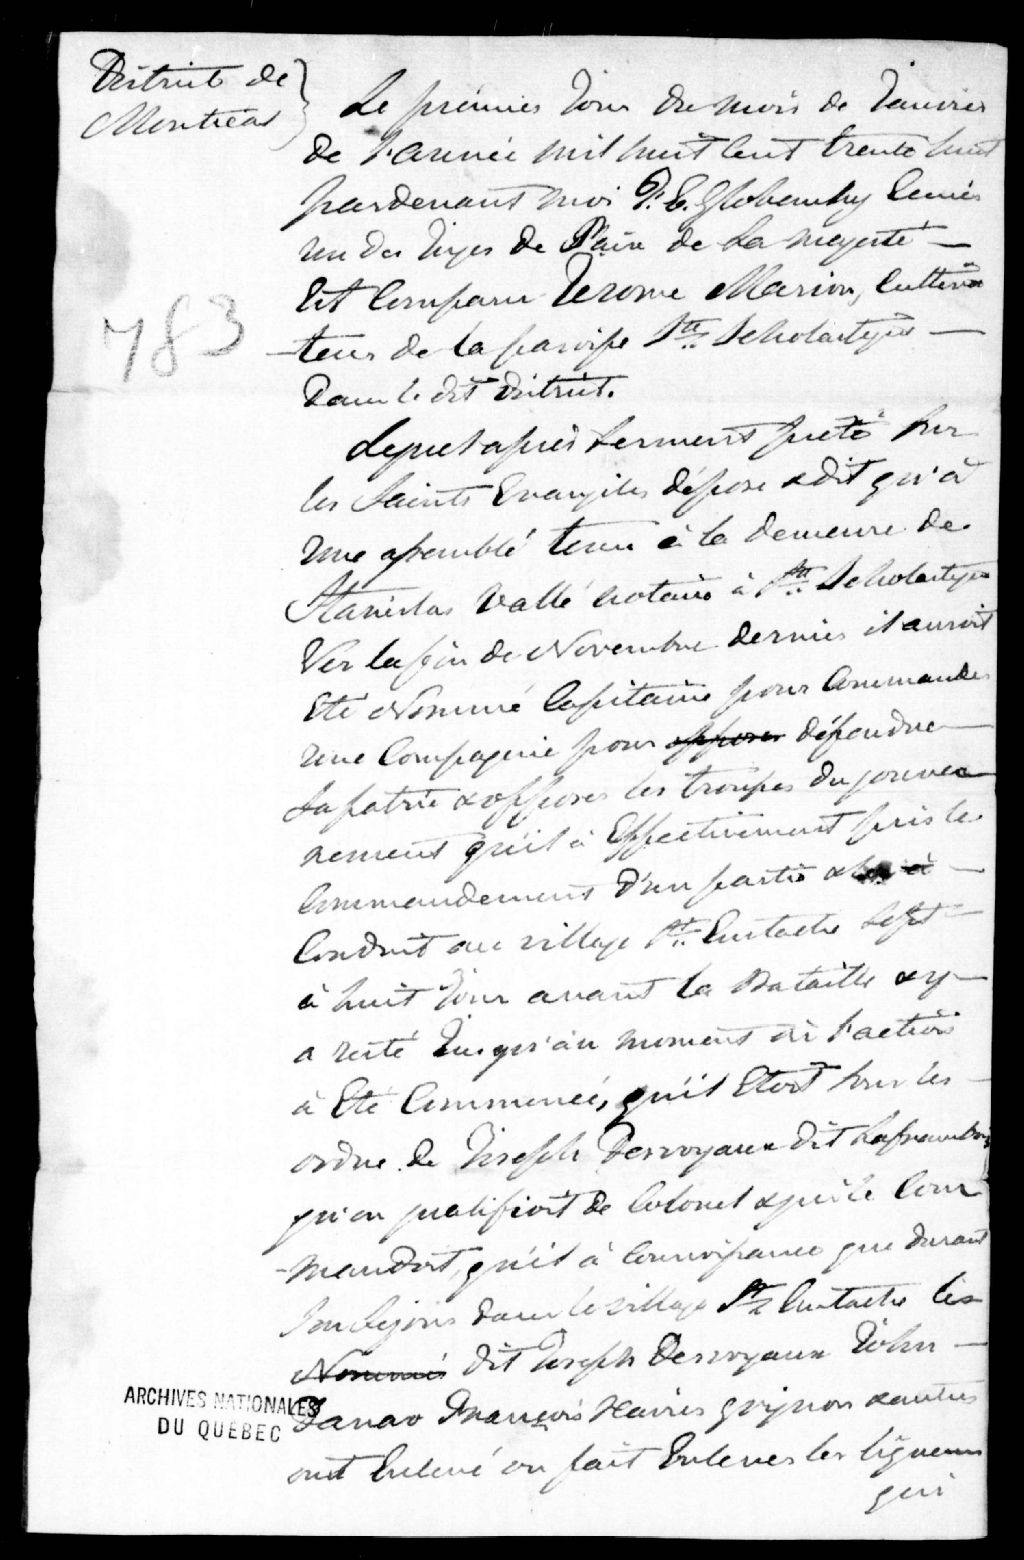 District de
Montréal
Le prémier Jour du mois de Janvier
de l'année mil huit cent trente huit
pardevant moi F. E. Globensky Ecuier
un des Juges de Paix de Sa majesté
Est Comparu Jerome Marion, Cultiva
teur de la paroisse Ste Scholastique
Dans le dit District.
783
Lequel après serment preté sur
les Saints Evangiles dépose & dit qu'à
une assemblé tenu à la demeure de
Stanislas Vallé notaire à Ste Scholastique
Ver la fin de Novembre dernier il auroit
Eté Nommé Capitaine pour Commander
une Compagnie pour opposer défendre
la patrie & opposer les troupes du gouver
nement qu'il à Effectivement pris le
Commandement d'un partie & à
Conduit au village St. Eustache sept
à huit Jour avant la Bataille & y
a resté Jusqu'au moment où l'action
à Eté Commencée, qu'il Etoit sous les
ordre de Joseph Desroyaux dit Laframboise
qu'on qualifioit de Colonel & qui le Com
mandoit, qu'il à Connoissance que durant
son Sejour dans le village St Eustache les
Nommés dit Joseph Desroyaux John
Janav François Xavier Grignon & autres
ont Enlevé ou fait Enlever les ligneurs
qui
ARCHIVES NATIONALES
DU QUÉBEC